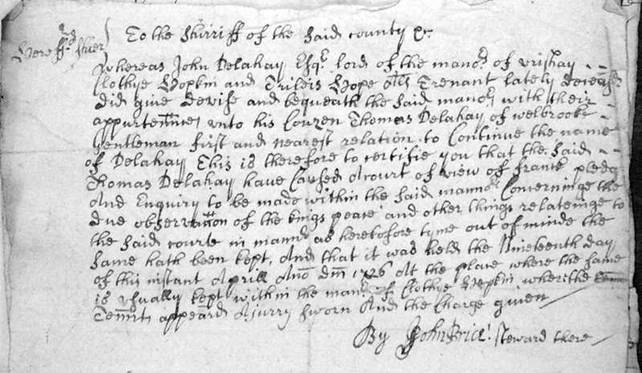 Hereff: Shier
To the Shirriff of the said county &c
Whereas John Delahay Esqr lord of the manor of Urishay
Slothye Hopkin and Trileis Hope als Trenant lately deceased
did give devise and bequeath the said manors with their
appurtennces unto his Couzen Thomas Delahay of Welbrooke
gentleman first and nearest relation to Continue the name
of Delahay This is therefore to certifie you that the said
Thomas Delahay have Caused A Court of view of frank pledg
And Enquiry to be made within the said mannor Concerninge the
due observation of the kings peace and other things relateinge to
the said courte in manner as heretofore tyme out of minde the
same hath been kept, And that it was held the Nineteenth day
of this instant Aprill Ano dm 1726 Att the place where the same
is Usually kept within the manr of Slothye Hopkin where the
Tennts appeard A Jurry sworn And the Charge given
By John Price Steward there